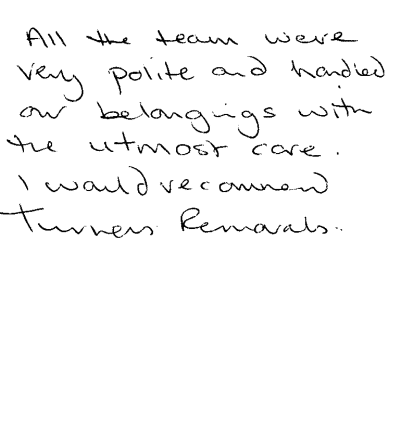 All the team were
very polite and handled
our belongings with
the utmost care.
I would recommend
Turners Removals.